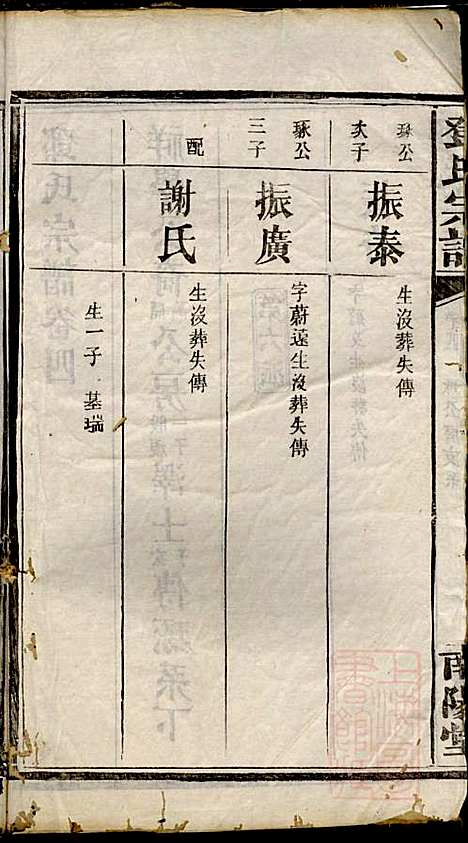 鄧氏宗譜
南陽堂
琢公
次子
振泰
生沒葬失傳
琢公
三子
振廣
字蔚遠生沒葬失傳
配
謝氏
生沒葬失傳
生一子 基瑞